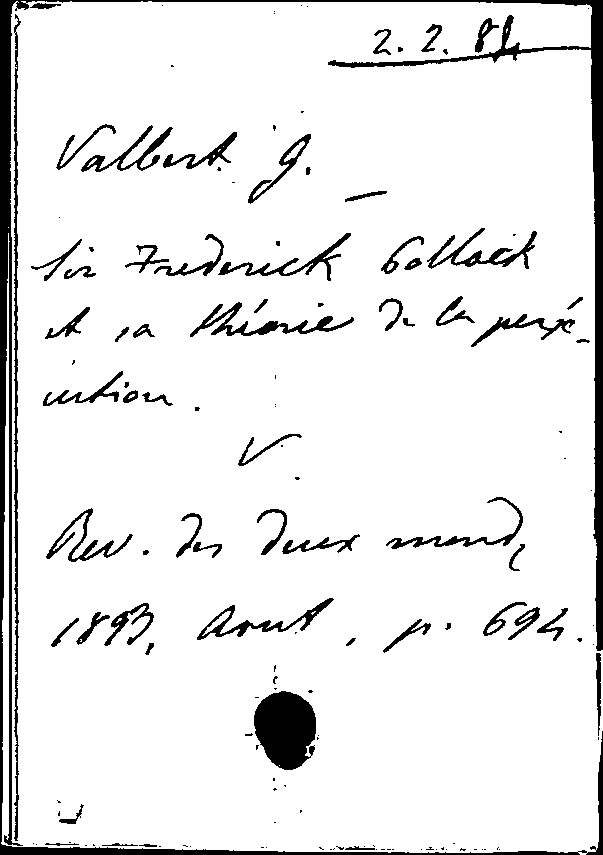 2. 2. 84
Valbert. G. —
Sir Frederick Pollock
et sa théorie de la persé-
cution.
V.
Rev. des deux mond,
1893, Aout, p. 694.